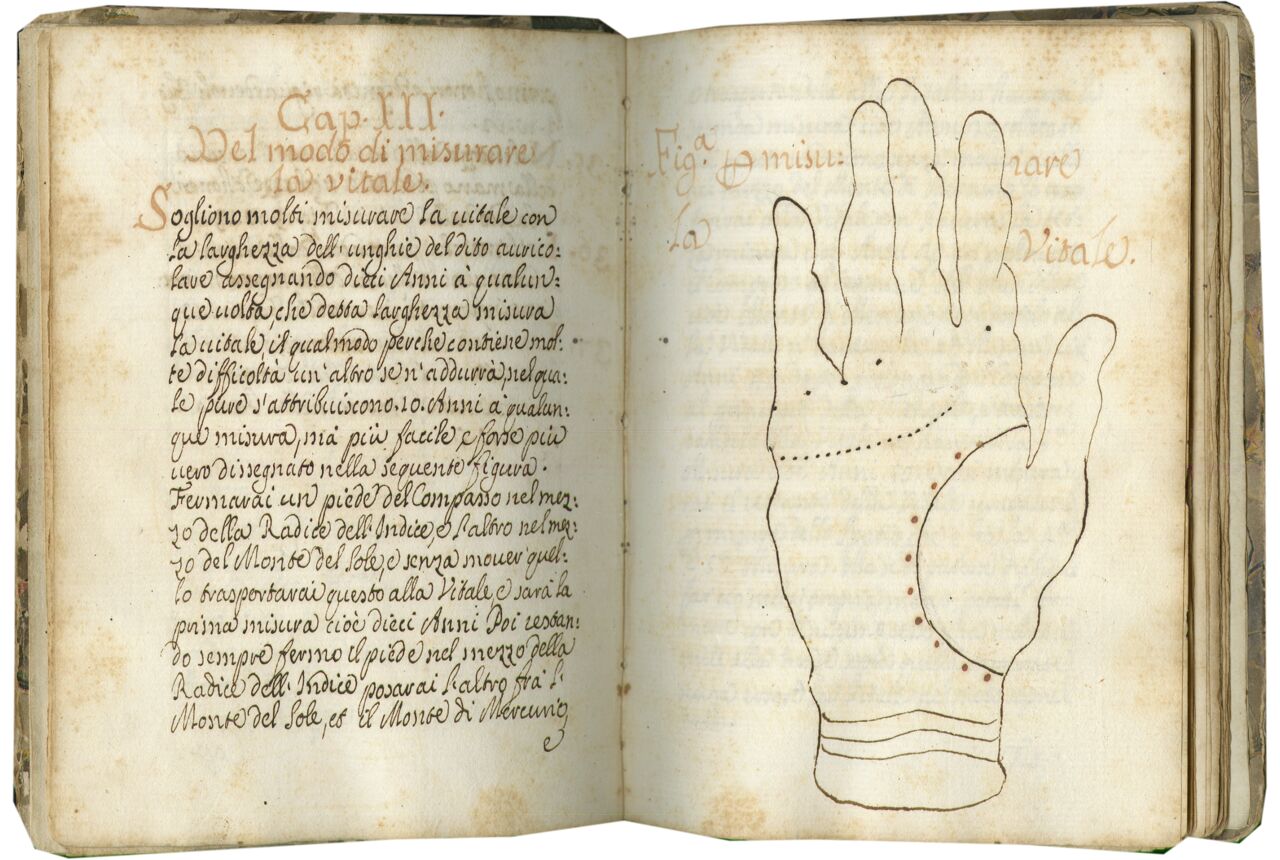 Cap. III.
Del modo di misurare
la vitale.
Sogliono molti misurare la uitale con
la larghezza dell'unghie del dito aurico:
lare assegnando dieci Anni à qualun:
que uolta, che detta larghezza misura
la uitale, il qual modo perche contiene mol:
te difficoltà un'altro se n'addurrà, nel qua:
le, pure s'attribuiscono .10. Anni à qualun:
que misura, mà più facile, e forse più
uero dissegnato nella seguente figura.
Fermarai un piede del Compasso nel mez:
zo della Radice dell'Indice, e l'altro nel mez:
zo del Monte del Sole, e senza mouer quel:
lo trasportarai questo alla Vitale, e sarà la
prima misura cioè dieci Anni Poi restan:
do sempre fermo il piede nel mezzo della
Radice dell'Indice posarai l'altro frà l'
Monte del Sole, et il Monte di Mercurio
e
Fig.ª misu: rare
la Vitale.